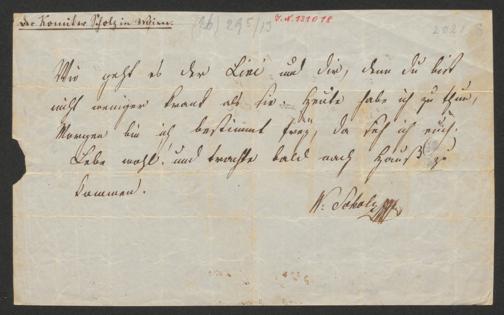 Der Komiker Scholz in Wien.
295/13
I.N. 131018
Wie geht es der Lini und dir, denn du bist
nicht weniger krank als sie. Heute habe ich zu thun,
Morgen bin ich bestimmt freÿ, da seh ich euch.
Lebe wohl! und trachte bald nach Hauß zu
kommen!
W: Scholz